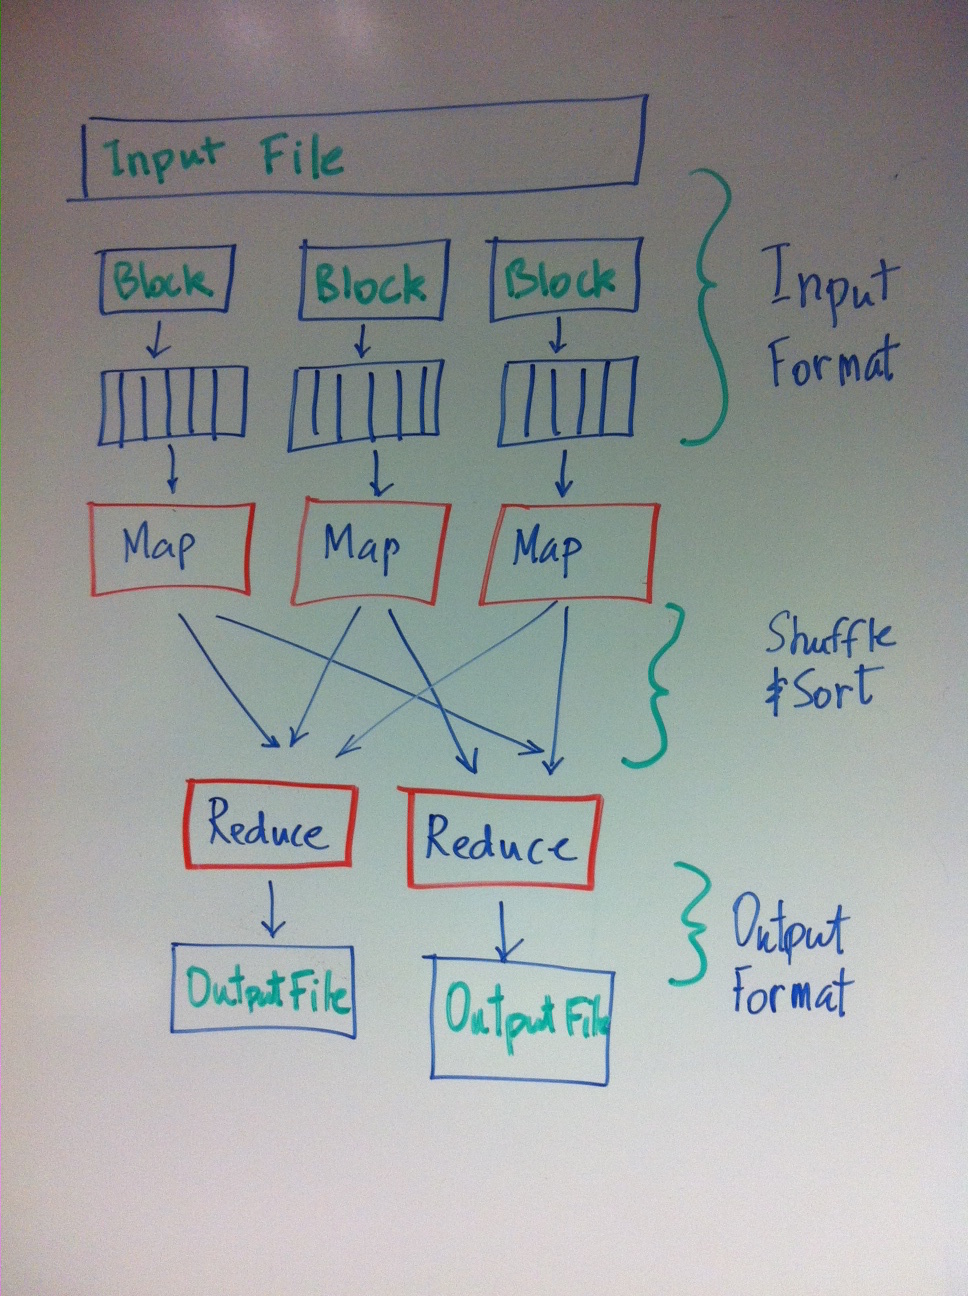 Input File
Block Block Block
Input
Format
Map Map Map
Shuffle
& Sort
Reduce Reduce
Output
Format
Output File Output File